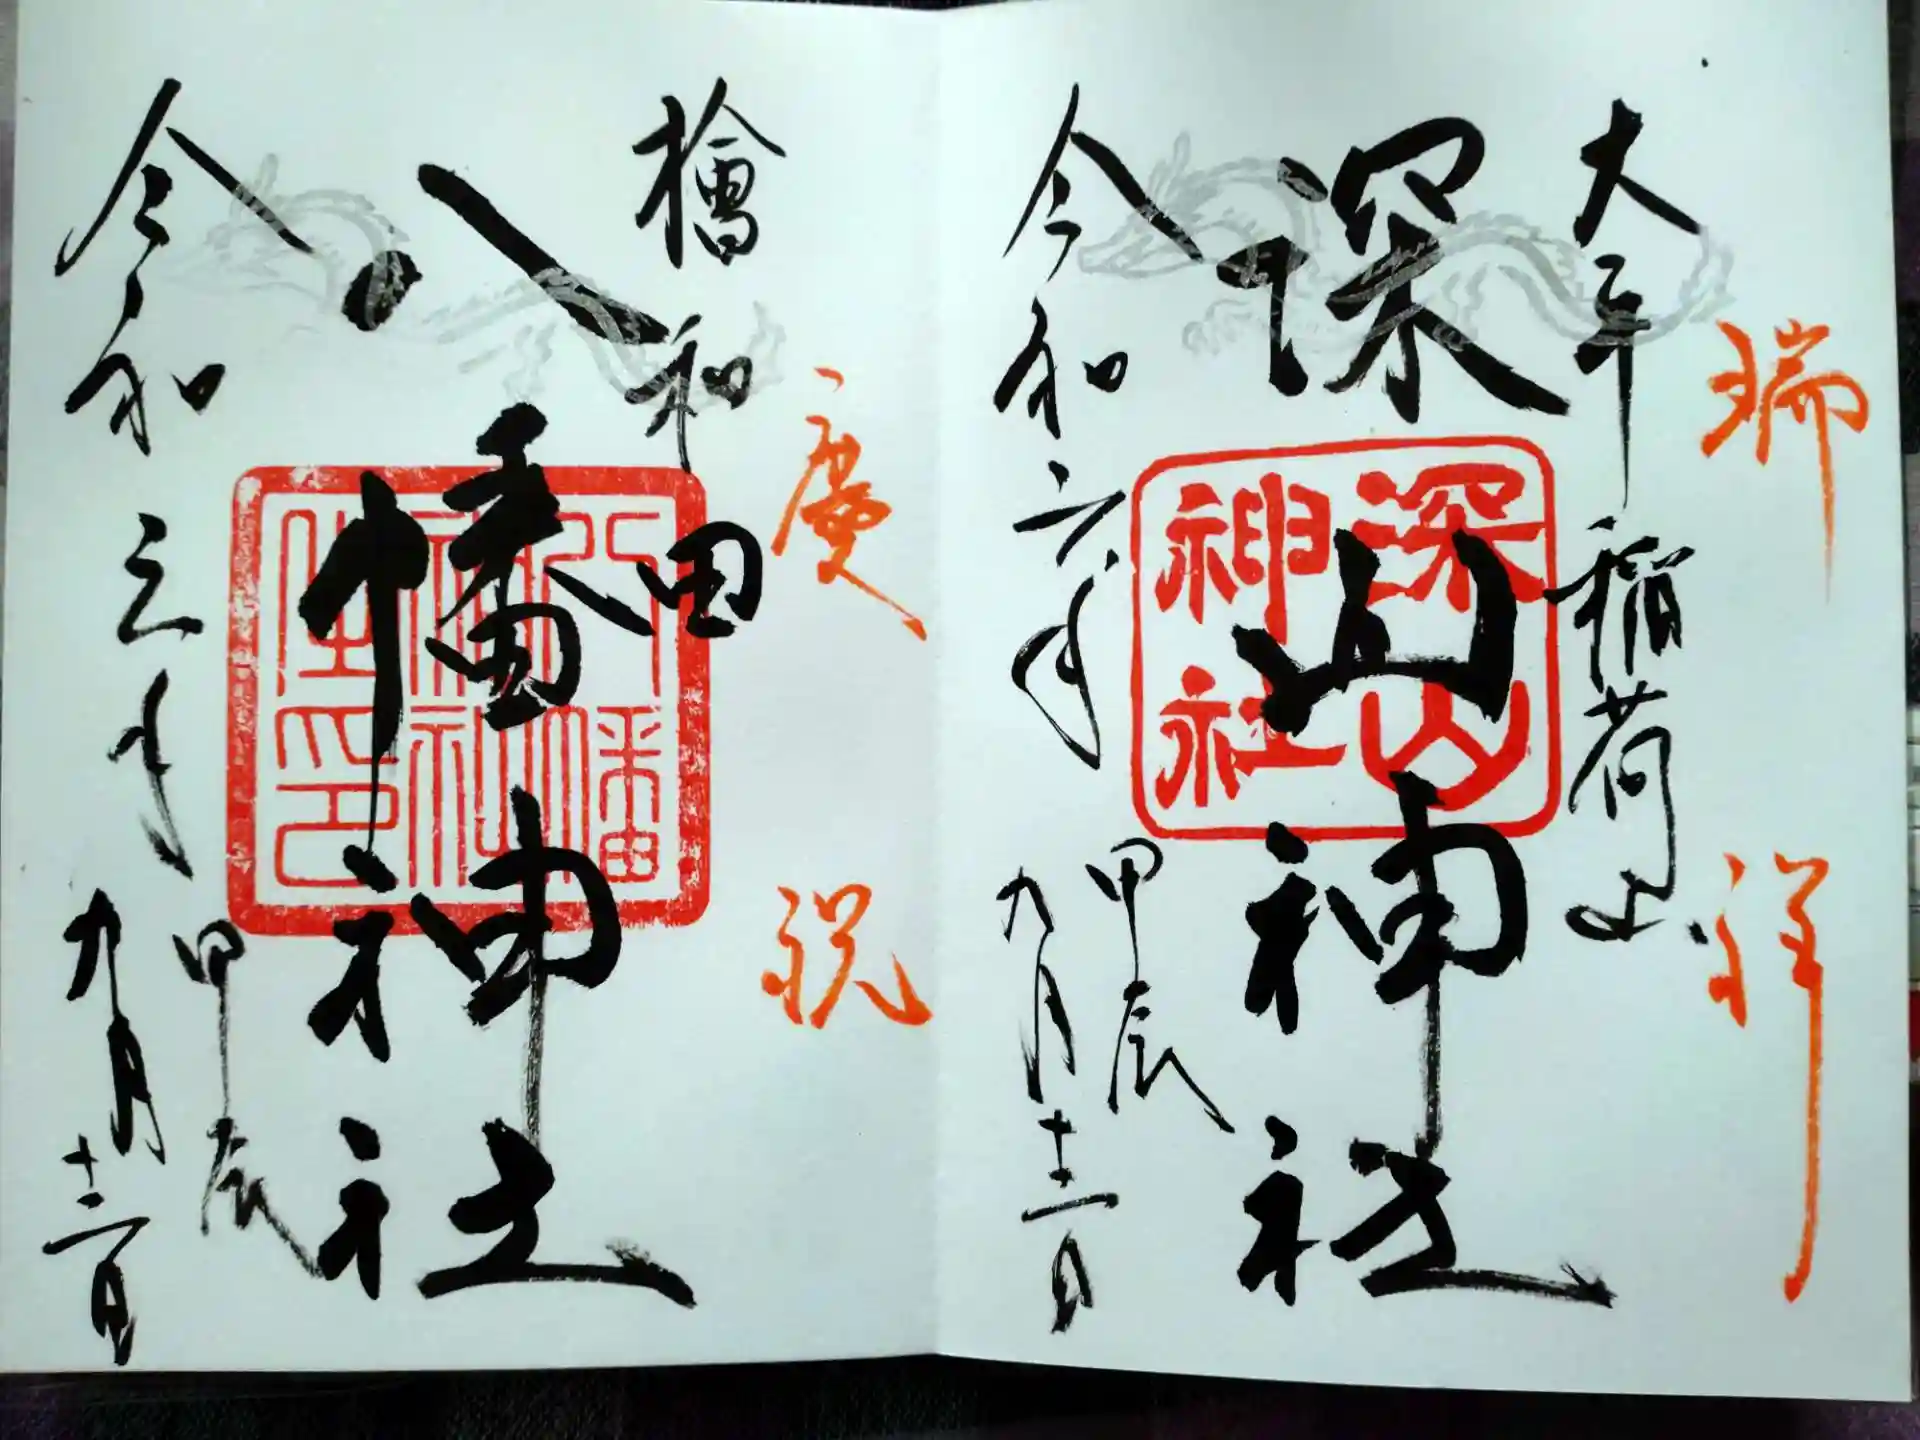 瑞祥
大平稲荷山
深山神社
深山
神社
甲辰
令和六年
九月十二日
慶祝
檜和田
八幡神社
八幡
神社
之印
甲辰
令和六年
九月十二日